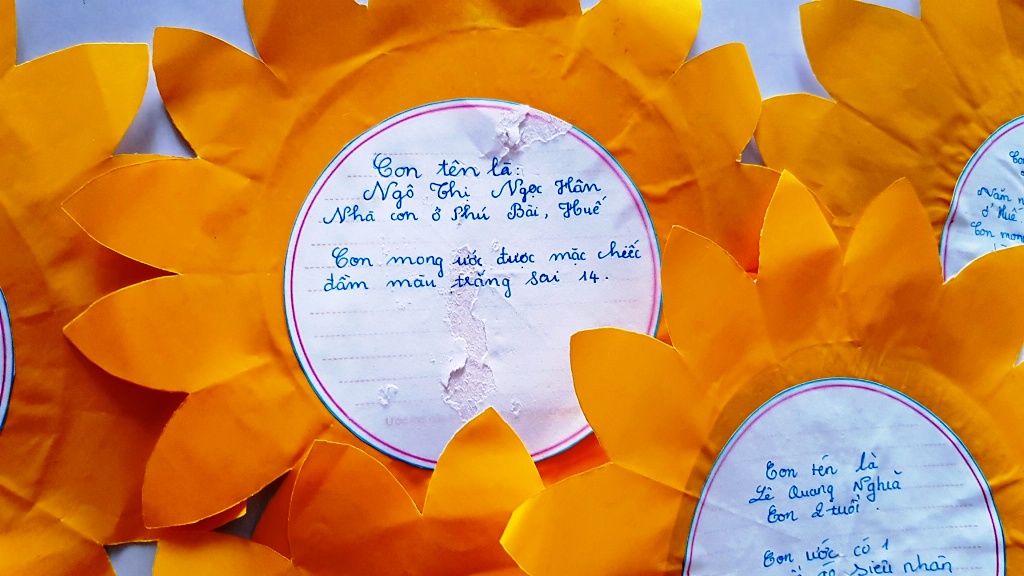 Con tên là:
Ngô Thị Ngọc Hân
Nhà con ở Phú Bài, Huế
Con mong ước được mặc chiếc
đầm màu trắng sai 14.
Con tên là
Lê Quang Nghĩa
Con 2 tuổi.
Con ước có 1
siêu nhân
Năm
ở Huế
Con mong